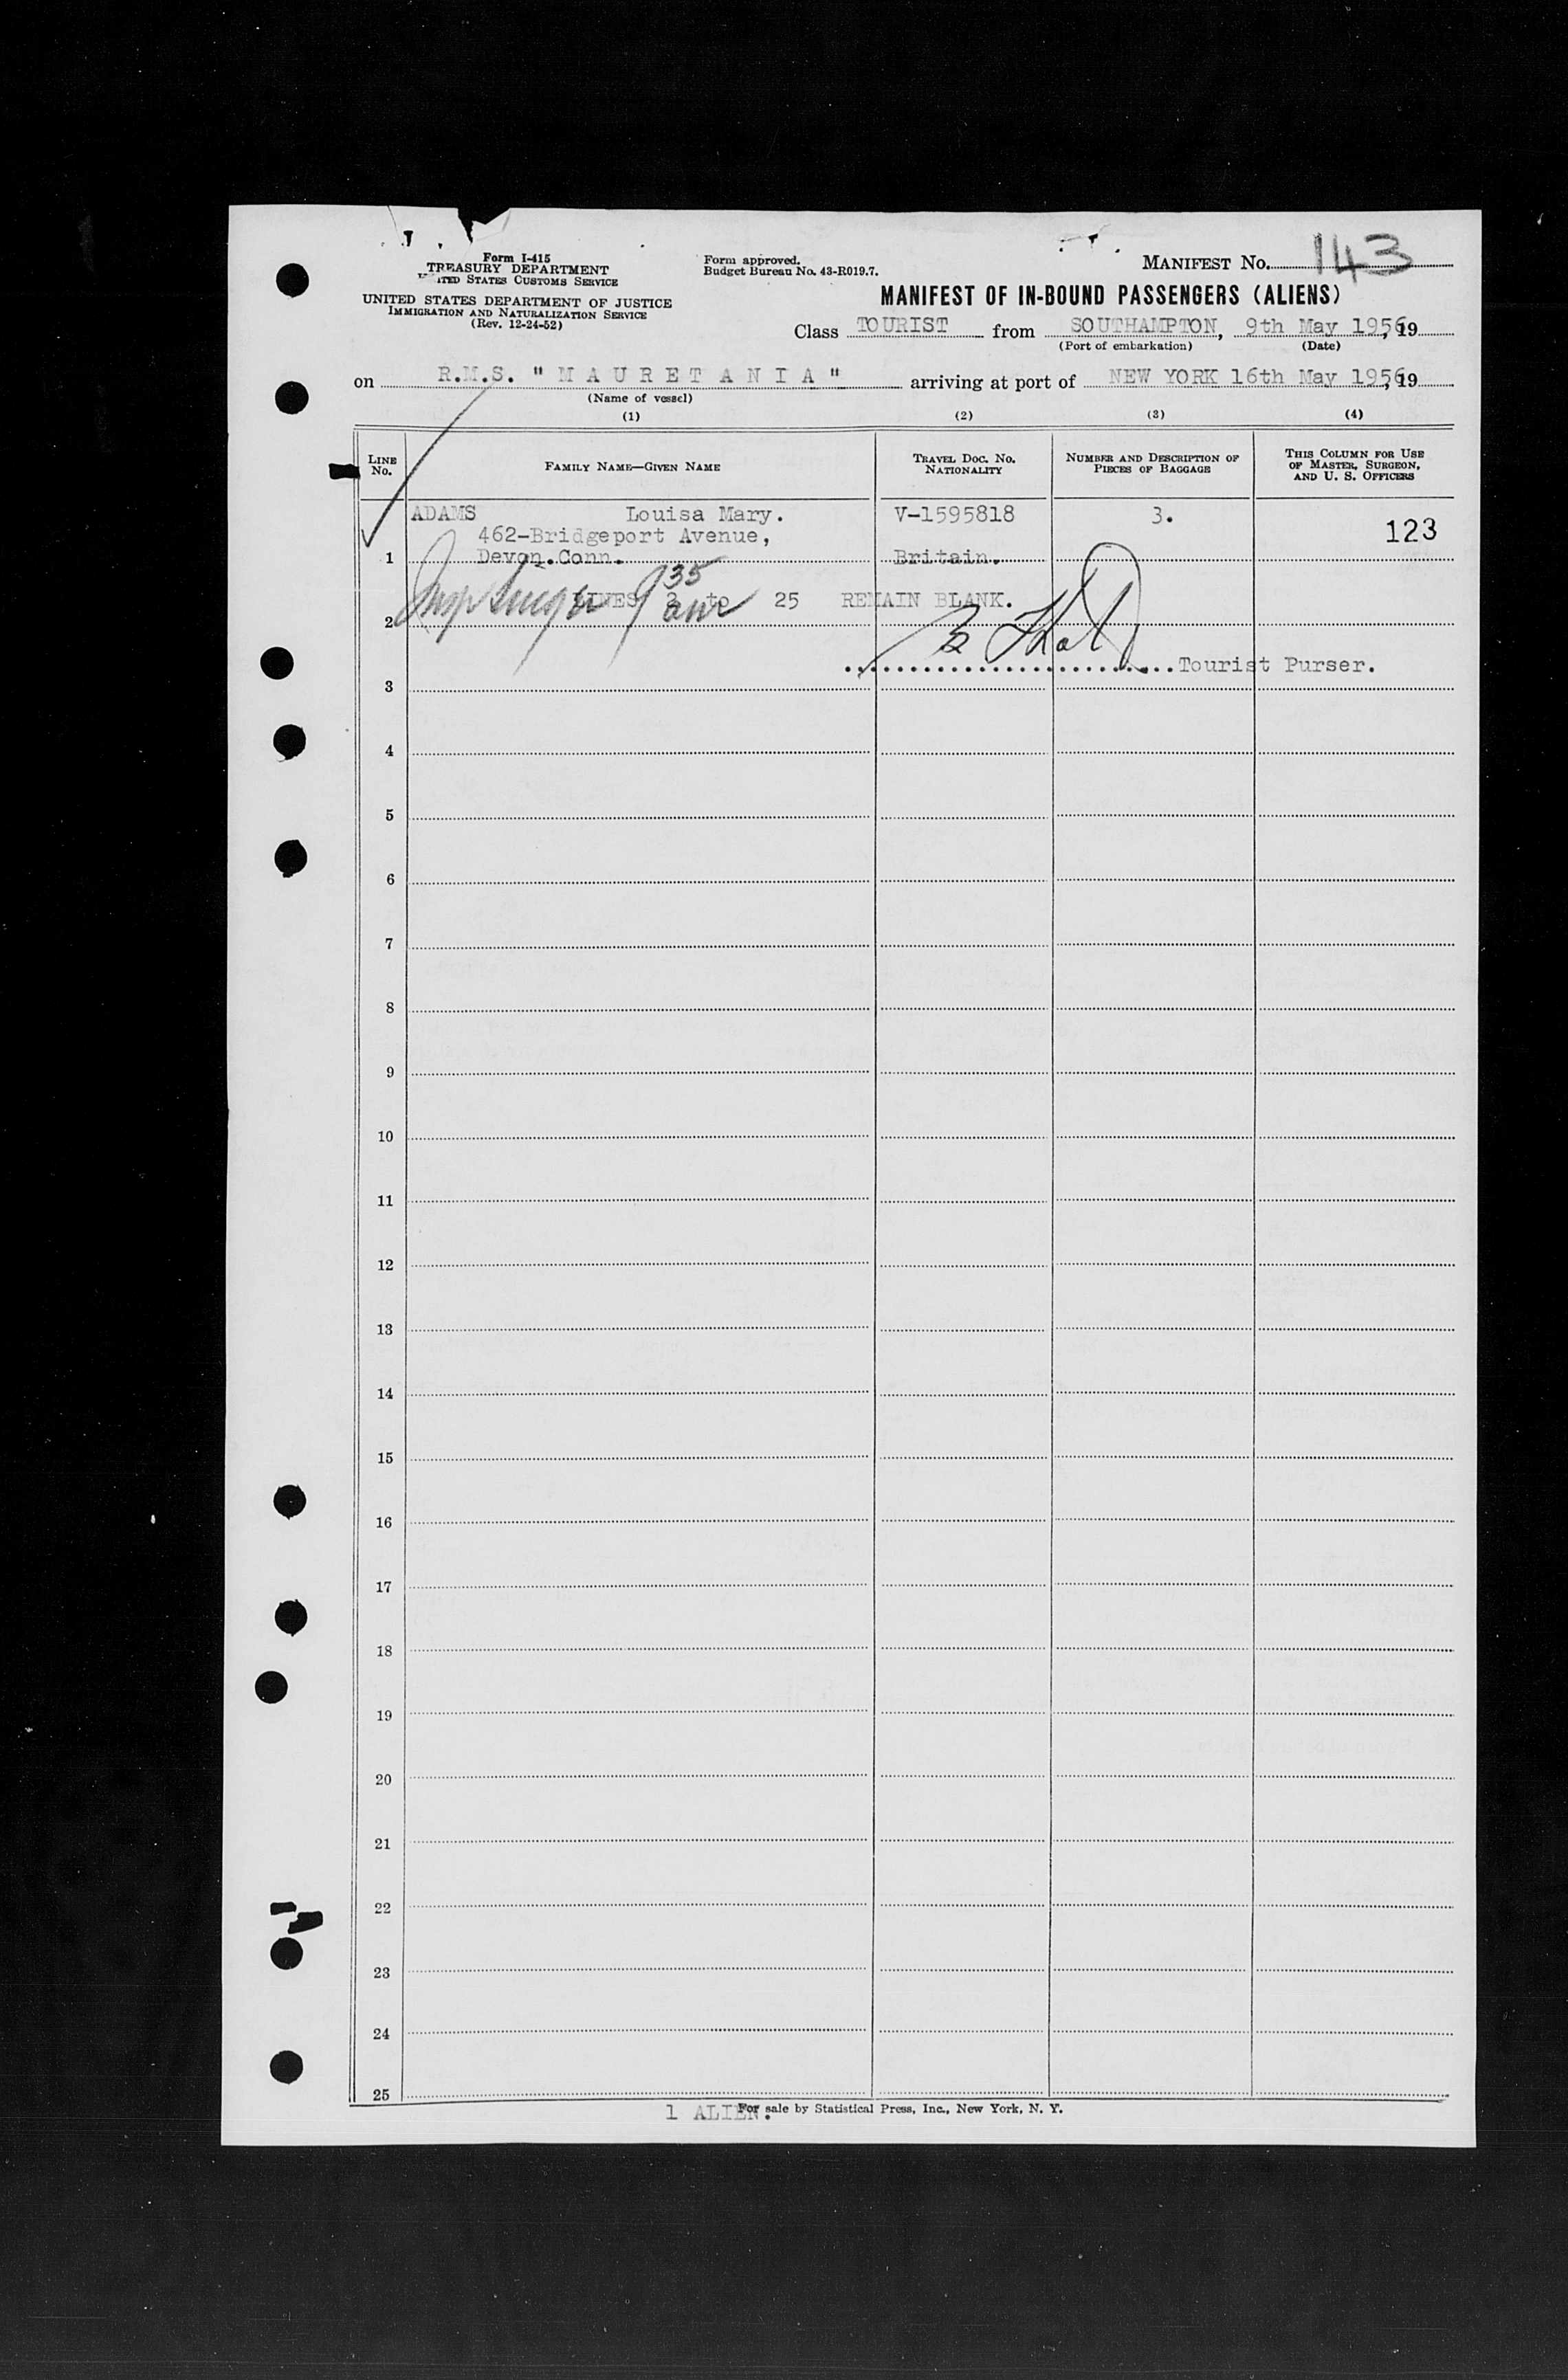 Form I-415
TREASURY DEPARTMENT
UNITED STATES CUSTOMS SERVICE
UNITED STATES DEPARTMENT OF JUSTICE
IMMIGRATION AND NATURALIZATION SERVICE
(Rev. 12-24-52)
Form approved.
Budget Bureau No. 43-R019.7.
MANIFEST No. 143
MANIFEST OF IN-BOUND PASSENGERS (ALIENS)
Class TOURIST from SOUTHAMPTON, 9th May 1956, 19
(Port of embarkation) (Date)
on R.M.S. "MAURETANIA" arriving at port of NEW YORK 16th May 1956, 19
(Name of vessel)
(1) (2) (3) (4)
LINE No. FAMILY NAME—GIVEN NAME TRAVEL DOC. NO. NATIONALITY NUMBER AND DESCRIPTION OF PIECES OF BAGGAGE THIS COLUMN FOR USE OF MASTER, SURGEON, AND U. S. OFFICERS
ADAMS Louisa Mary. V-1595818 3. 123
462-Bridgeport Avenue,
1 Devon.Conn. Britain.
935
LINES 2 to 25 REMAIN BLANK.
2
Tourist Purser.
3
4
5
6
7
8
9
10
11
12
13
14
15
16
17
18
19
20
21
22
23
24
25
1 ALIEN.
For sale by Statistical Press, Inc., New York, N. Y.